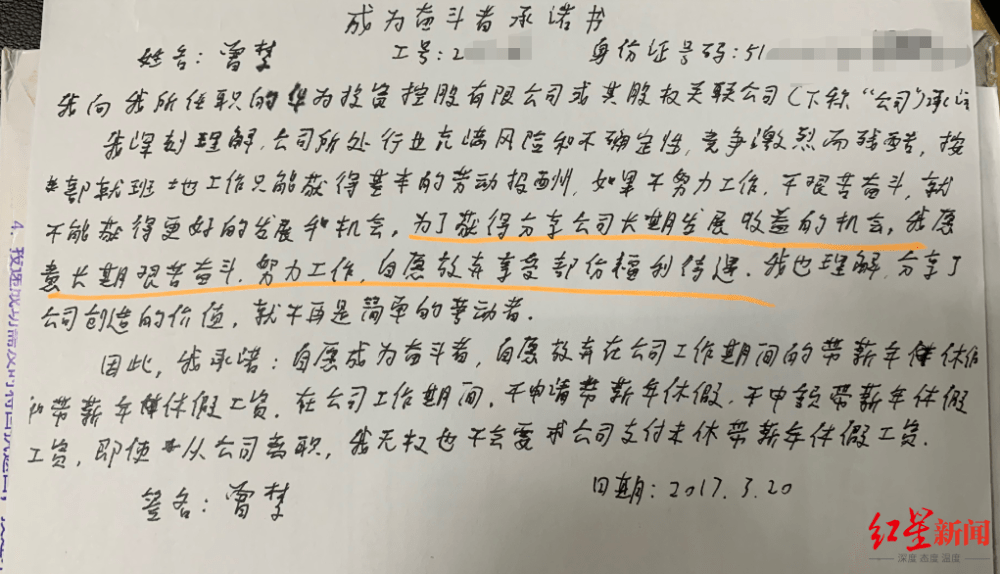 成为奋斗者承诺书
姓名：曾梦 工号：2 身份证号码：51
我向我所任职的华为投资控股有限公司或其股权关联公司（下称“公司”）承诺
我深刻理解，公司所处行业充满风险和不确定性，竞争激烈而残酷，按
部就班地工作只能获得基本的劳动报酬，如果不努力工作，不艰苦奋斗，就
不能获得更好的发展和机会。为了获得分享公司长期发展收益的机会，我愿
意长期艰苦奋斗，努力工作，自愿放弃享受部份福利待遇。我也理解，分享了
公司创造的价值，就不再是简单的劳动者。
因此，我承诺：自愿成为奋斗者，自愿放弃在公司工作期间的带薪年休假
和带薪年休假工资。在公司工作期间，不申请带薪年休假，不申领带薪年休假
工资，即使从公司离职，我无权也不会要求公司支付未休带薪年休假工资。
签名：曾梦 日期：2017.3.20
4、我
红星新闻
深度 态度 温度